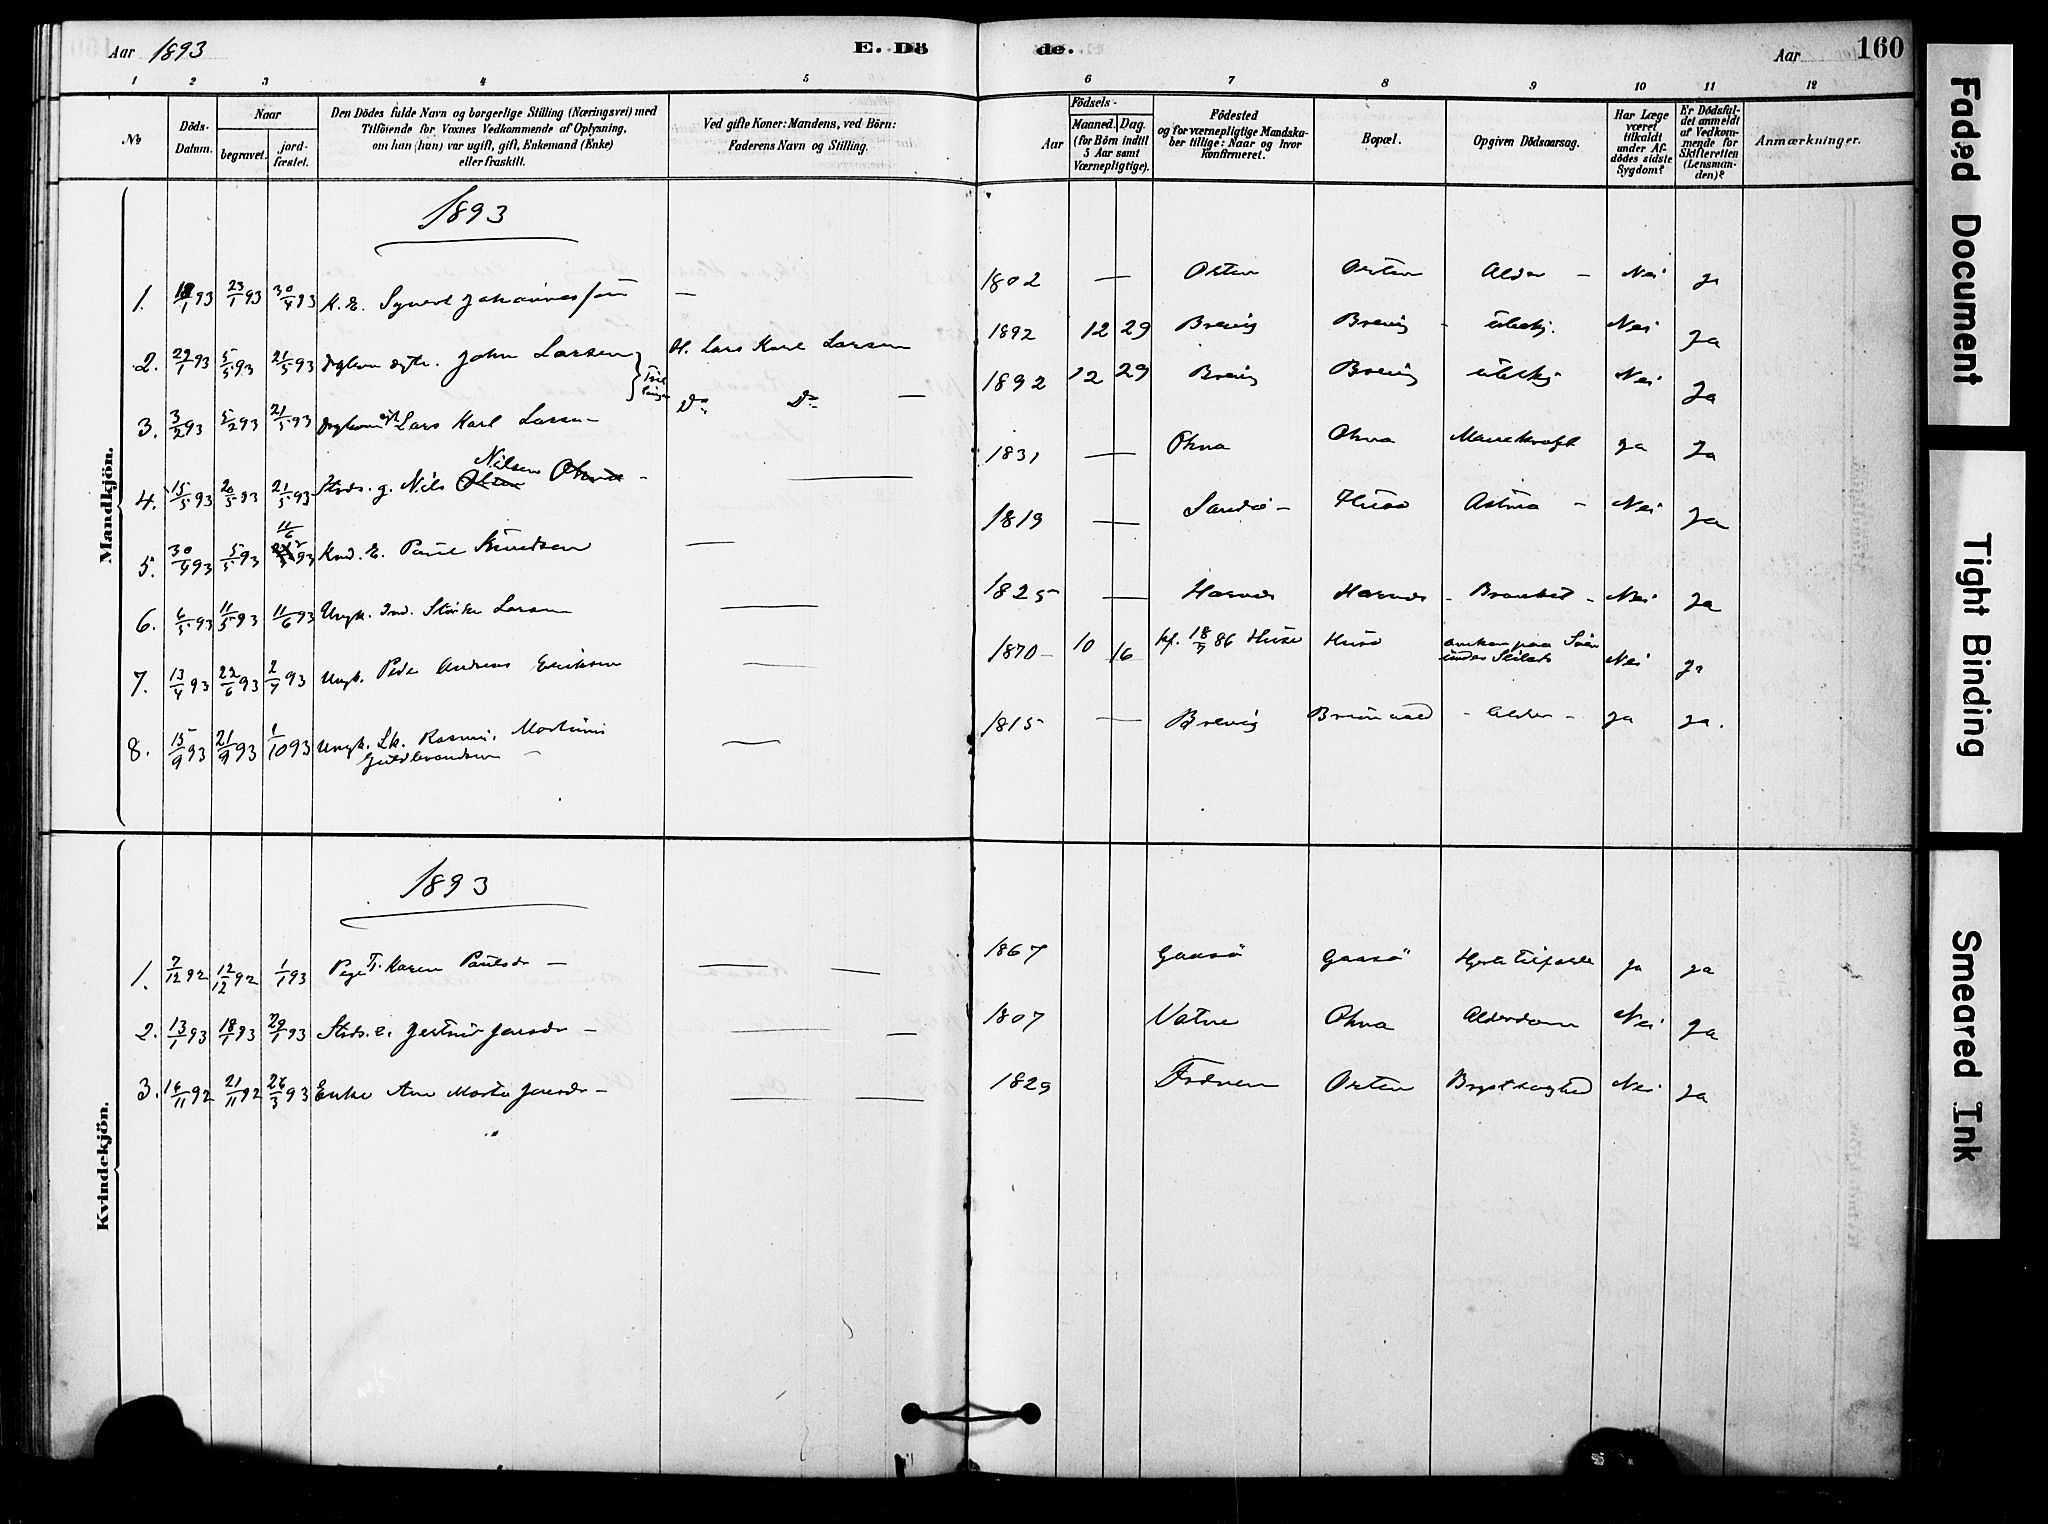 Aar 1893
E. Dö
de.
Aar
160
1 2 3 4 5 6 7 8 9 10 11 12
No
Döds-Datum.
Naar
begravet.
jord-fæstet.
Den Dödes fulde Navn og borgerlige Stilling (Næringsvei) med
Tilföiende for Voxnes Vedkommende af Oplysning,
om han (hun) var ugift, gift, Enkemand (Enke)
eller fraskilt.
Ved gifte Koner: Mandens, ved Börn:
Faderens Navn og Stilling.
Födsels-
Aar
Maaned. Dag.
(for Börn indtil
5 Aar samt
Værnepligtige).
Födested
og for værnepligtige Mandska-
ber tillige: Naar og hvor
konfirmeret.
Bopæl.
Opgiven Dödsaarsag.
Har Læge
været
tilkaldt
under Af-
dödes sidste
Sygdom?
Er Dödsfal-
det anmeldt
af Vedkom-
mende for
Skifteretten
(Lensman-
den)?
Anmærkninger.
Mandkjön.
1893
1. 18/1 93 23/1 93 30/4 93 K. E. Syvert Johannessen — 1802 — Orten Orten Alder - Nei Ja
2. 29/1 93 5/5 93 21/5 93 John Larsen H. Lars Karl Larsen 1892 12 29 Brevig Brevig - Nei Ja
3. 3/2 93 5/2 93 21/5 93 Lars Karl Larsen Do Do — 1892 12 29 Brevig Brevig Nei Ja
4. 15/5 93 20/5 93 21/5 93 Strds. g. Nils Nilsen — 1831 — Ohna Ohna Mavekræft Ja Ja
5. 30/4 93 5/5 93 11/6 93 Knd. E. Paul Knudsen — 1819 — Sandö - Husö Astma - Nei Ja
6. 6/5 93 11/5 93 11/6 93 Ungk. Ind. Larsen — 1825 — Harnes Harnes - - Nei Ja
7. 13/4 93 22/6 93 2/7 93 Ungk. Peder Andreas Eriksen — 1870 - 10 16 kf. 18/7 86 Husö Husö omkom paa Söen
under Nei Ja
8. 15/9 93 21/9 93 1/10 93 Ungk. Lk. Rasmus Martinus
Guldbrandsen — 1815 — Brevig - Alder - Ja Ja.
Kvindekjön.
1893
1. 7/12 92 12/12 92 1/1 93 Pige T. Karen Paulsdr — — — 1867 Gaasö Gaasö Ja Ja
2. 13/1 93 18/1 93 29/1 93 Strds. e. Jertrud Jonsdr — — — 1807 Vatne Ohna Alderdom Nei Ja
3. 16/11 92 21/11 92 26/3 93 Enke Ane Marta Jonsdr — — — 1829 Frönen Orten Brystsyghed Nei Ja
Faded Document
Tight Binding
Smeared Ink